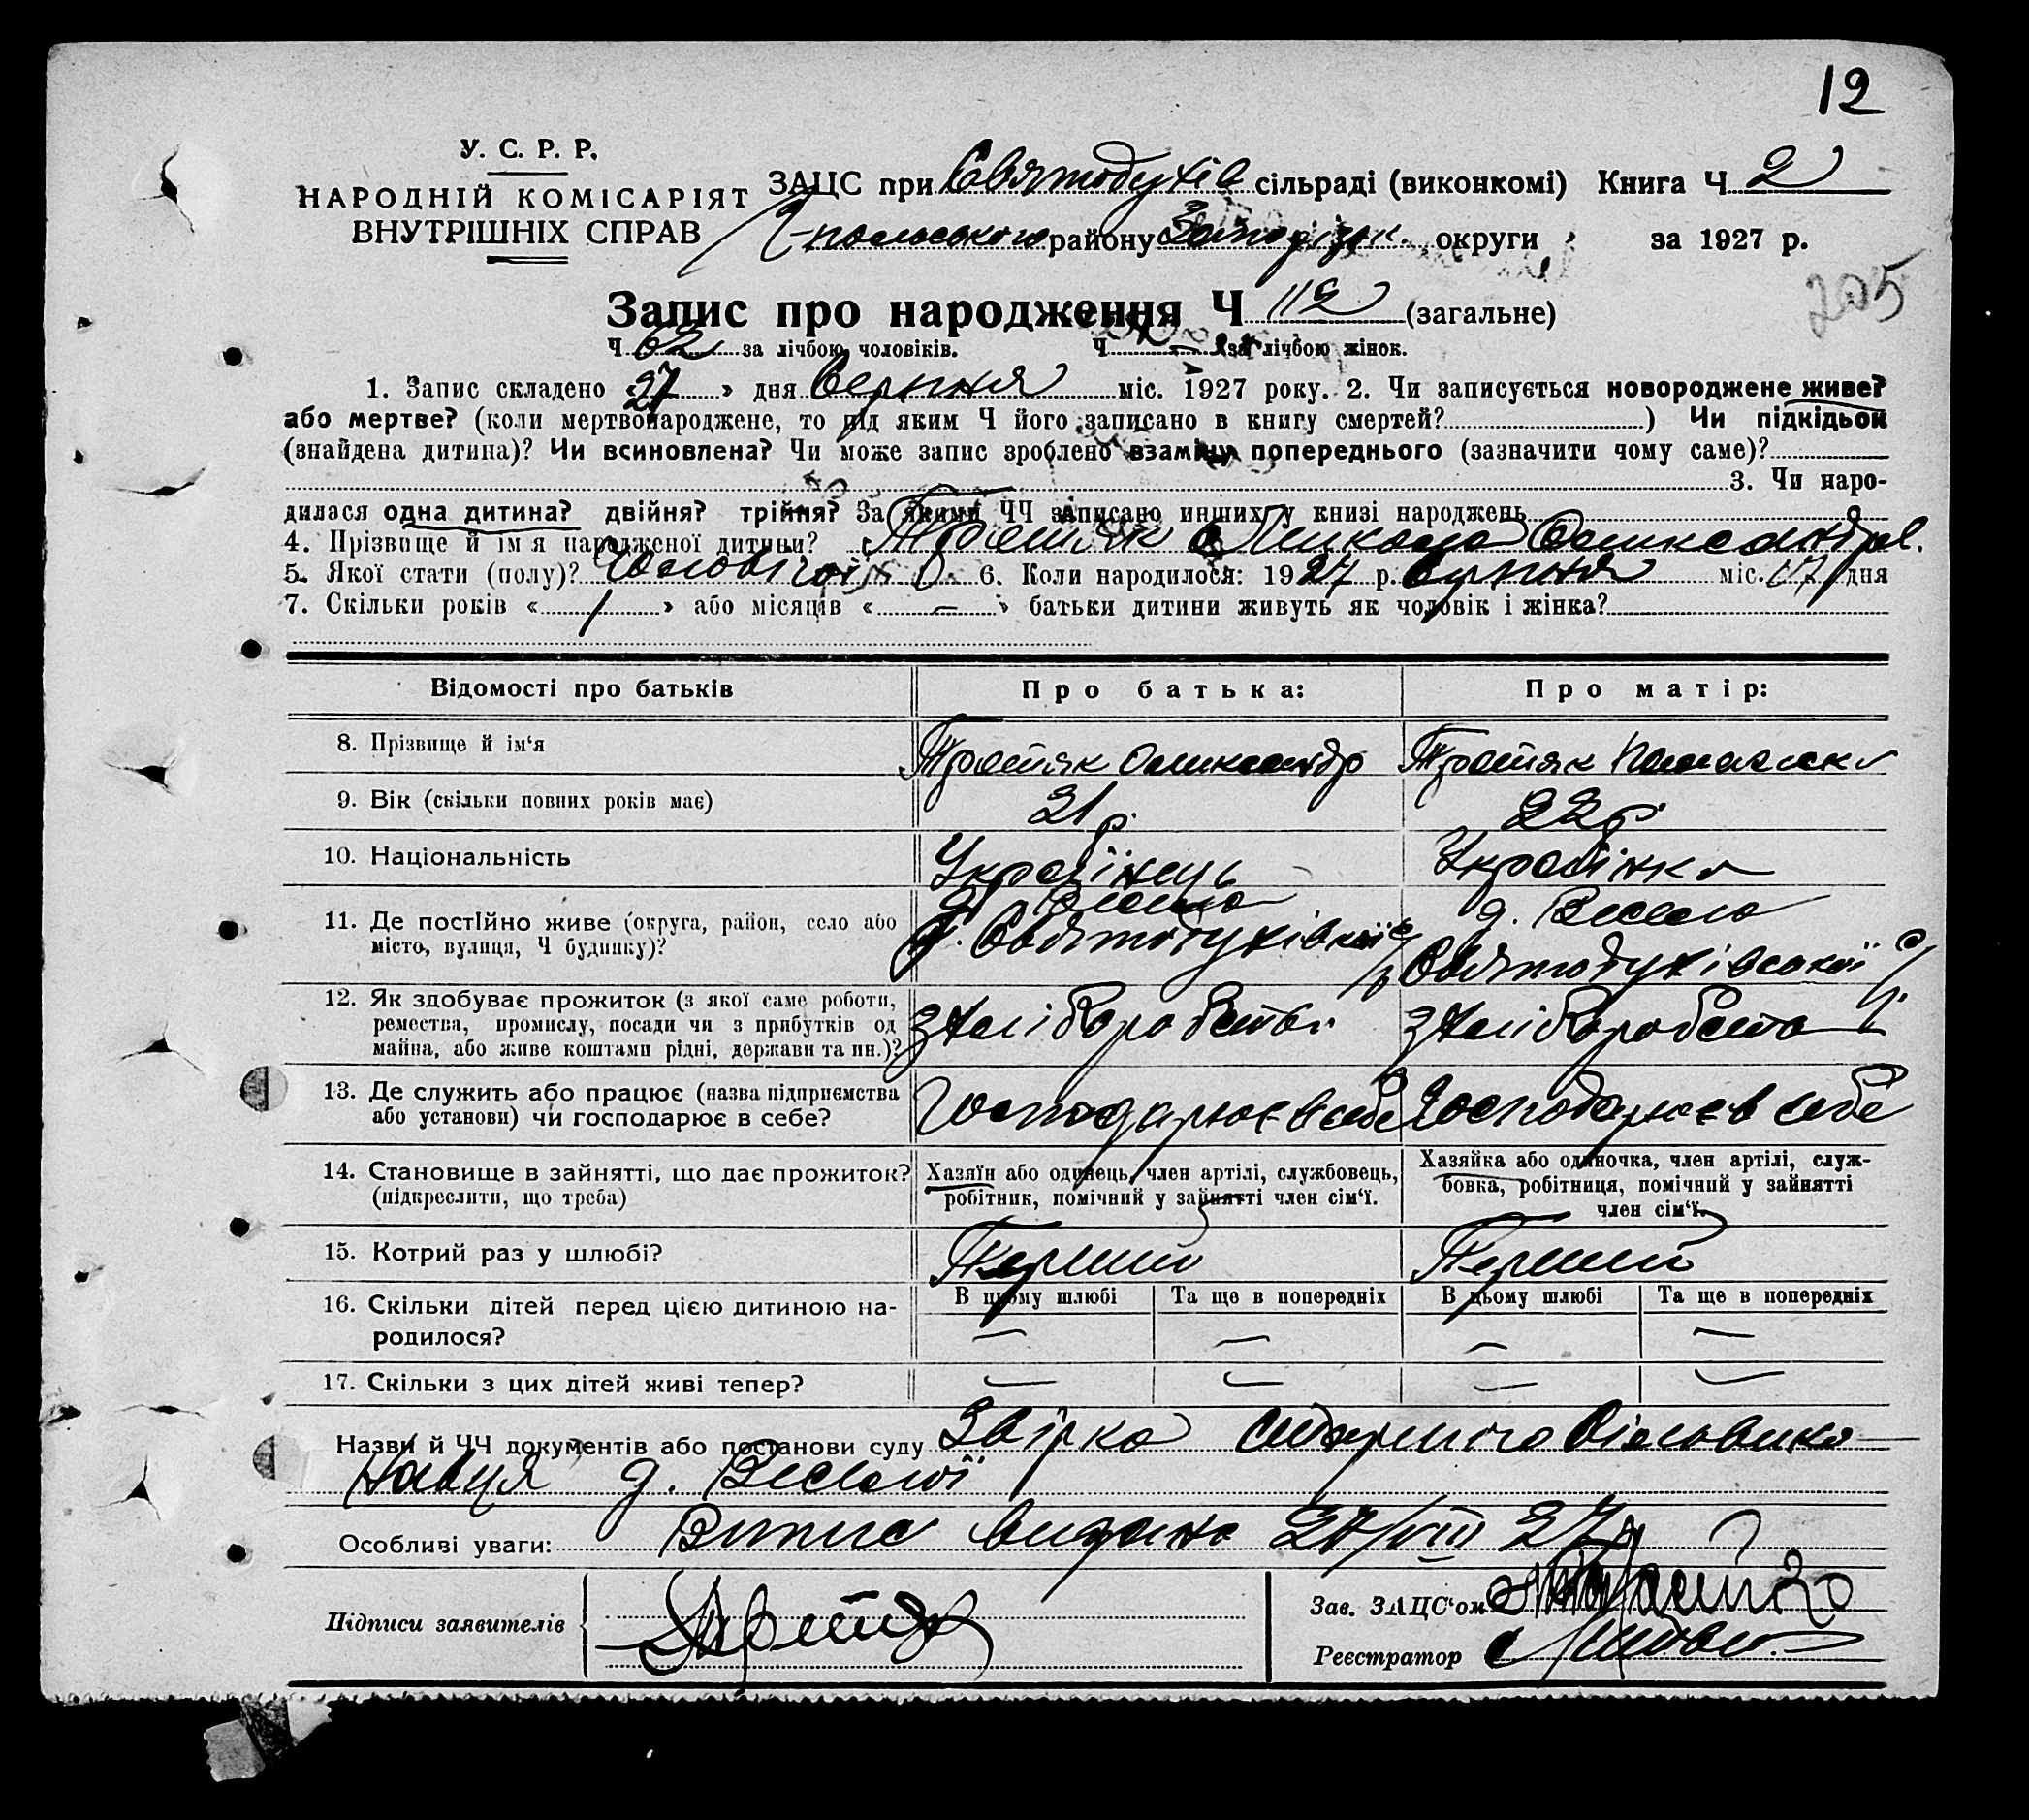 12
У. С. Р. Р.
НАРОДНІЙ КОМІСАРІЯТ
ВНУТРІШНІХ СПРАВ
ЗАЦС при Святодухів сільраді (виконкомі) Книга Ч 2
польського району Запоріз округи за 1927 р.
205
Запис про народження Ч 112 (загальне)
Ч 62 за лічбою чоловіків. Ч — за лічбою жінок.
1. Запис складено «27» дня Серпня міс. 1927 року. 2. Чи записується новороджене живе?
або мертве? (коли мертвонароджене, то під яким Ч його записано в книгу смертей? ) Чи підкідьок
(знайдена дитина)? Чи всиновлена? Чи може запис зроблено взамін попереднього (зазначити чому саме)?
3. Чи наро-
дилася одна дитина? двійня? трійня? За якими ЧЧ записано инших у книзі народжень
4. Прізвище й ім'я народженої дитини? Третяк Микола Олександр.
5. Якої стати (полу)? Чоловічої 6. Коли народилося: 1927 р. Серпня міс. 17 дня
7. Скільки років « 1 » або місяців « — » батьки дитини живуть як чоловік і жінка?
Відомості про батьків Про батька: Про матір:
8. Прізвище й ім'я Третяк Олександр Третяк
9. Вік (скільки повних років має) 21 р. 22 р.
10. Національність Українець Українка
11. Де постійно живе (округа, район, село або
місто, вулиця, Ч будинку)?
д. Весела
Святодухівської с/р
д. Весела
Святодухівської с/р
12. Як здобуває прожиток (з якої саме роботи,
ремества, промислу, посади чи з прибутків од
майна, або живе коштами рідні, держави та ин.)?
з хліборобства з хліборобства
13. Де служить або працює (назва підприємства
або установи) чи господарює в себе?
Господарює в себе Господарює в себе
14. Становище в зайнятті, що дає прожиток?
(підкреслити, що треба)
Хазяїн або одинець, член артілі, службовець,
робітник, помічний у зайнятті член сім'ї.
Хазяйка або одиночка, член артілі, служ-
бовка, робітниця, помічний у зайнятті
член сім'ї.
15. Котрий раз у шлюбі? Перший Перший
В цьому шлюбі Та ще в попередніх В цьому шлюбі Та ще в попередніх
16. Скільки дітей перед цією дитиною на-
родилося?
— — — —
17. Скільки з цих дітей живі тепер? — — — —
Назви й ЧЧ документів або постанови суду Звірка
д. Веселої
Особливі уваги: Випис видано 27/VIII 27 р
Підписи заявителів Третяк
Зав. ЗАЦС'ом
Реєстратор